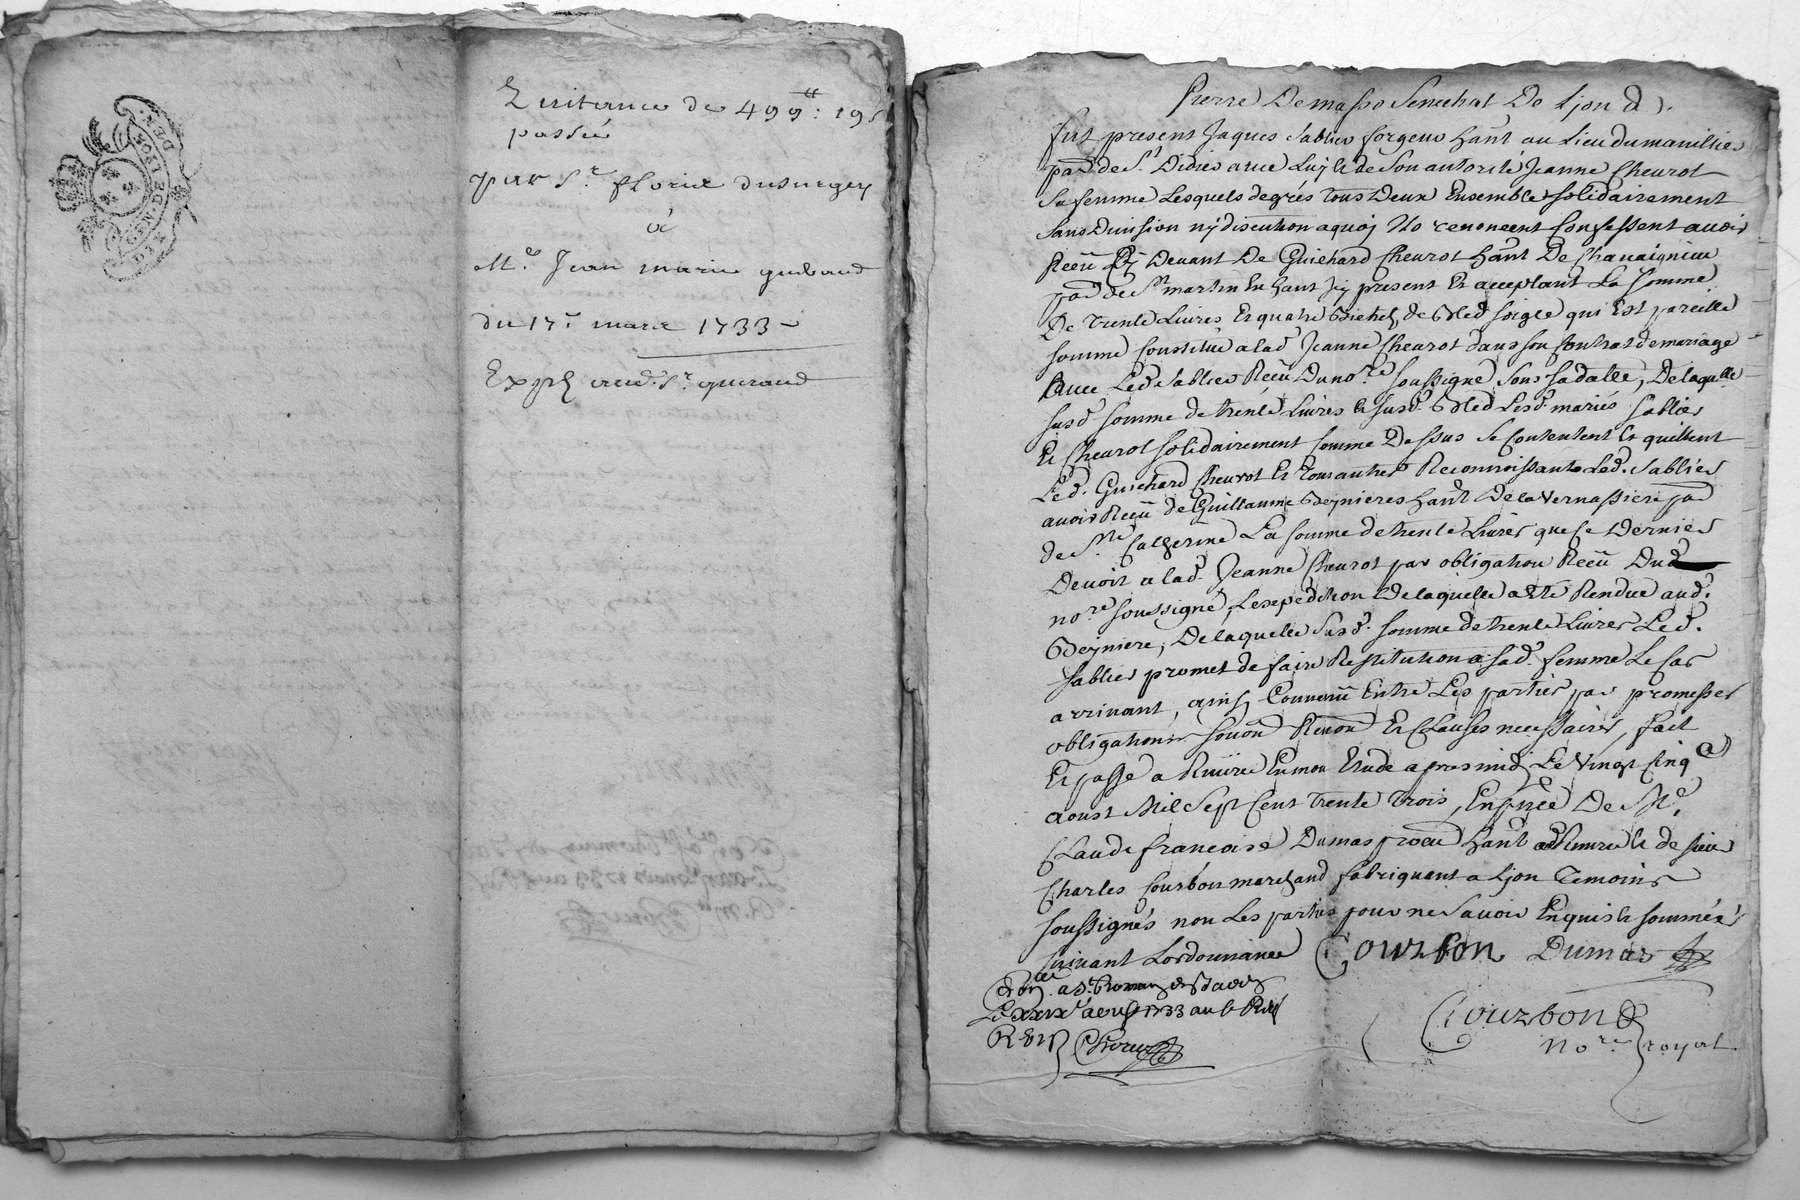 GEN. DE LION
Quittance de 499ᵗᵗ: 19 s
passée
par Sʳ. florie dusurgey
à
Mᵉ. Jean marie guiraud
du 17ᵉ. mars 1733
Expᵉ. aud. Sʳ. guiraud
Pierre Demasso Senechal De Lyon
fut present Jaques Sablier forgeur haᵗ au Lieu du
parˢ de Sᵗ Didier avec Luy & de Son autorité Jeanne Cheurot
Sa femme Lesquels degrés tous Deux Ensemble solidairement
Sans Division ny discution aquoy Ils renoncent Confessent avoir
Receu Cy Devant De Guichard Cheurot haᵗ De
par de Sᵗ martin En haut Icy present Et acceptant La Somme
De trente Livres Et quatre Bichets de Bled Seigle qui Est pareille
somme Constituée a lad. Jeanne Cheurot dans son Contrat de mariage
Avec Led. Sablier Receu Du noʳᵉ Soussigné Sous Sa datte, De laquelle
susd. somme de trente Livres & susd. Bled Lesd. mariés Sablier
Et Cheurot solidairement Comme Dessus Se Contentent Et quittent
Led. Guichard Cheurot Et tous autres Reconnoissants Led. Sablier
avoir Receu de Guillaume Beynieres haᵗ De la Vernassiere par
de Sᵗᵉ Catherine La somme de trente Livres que Ce Dernier
Devoit a lad. Jeanne Cheurot par obligation Receu Dud
noʳᵉ soussigné, Lexpedition De laquelle a Eté Rendue aud.
Beyniere, De laquelle Susd. somme de trente Livres Led.
Sablier promet de faire Restitution a Sad. femme Le Cas
arrivant, ainsy Convenu Entre Les parties par promesses
obligations Renon Et Clauses necessaires, fait
Et passé a Riverie En mon Etude apres midy Le Vingt Cinq
aoust Mil Sept Cent trente trois, En pñce De Mᵉ.
Claude francois Dumas haᵗ a Riverie & de Sieur
Charles Courbon marchand fabriquant a Lyon Temoins
soussignés non Les parties pour ne Savoir Enquis & sommées
suivant Lordonnance Courbon Dumas
a Sᵗ Romain
Le XXIX aoust 1733
Courbon
noʳᵉ royal